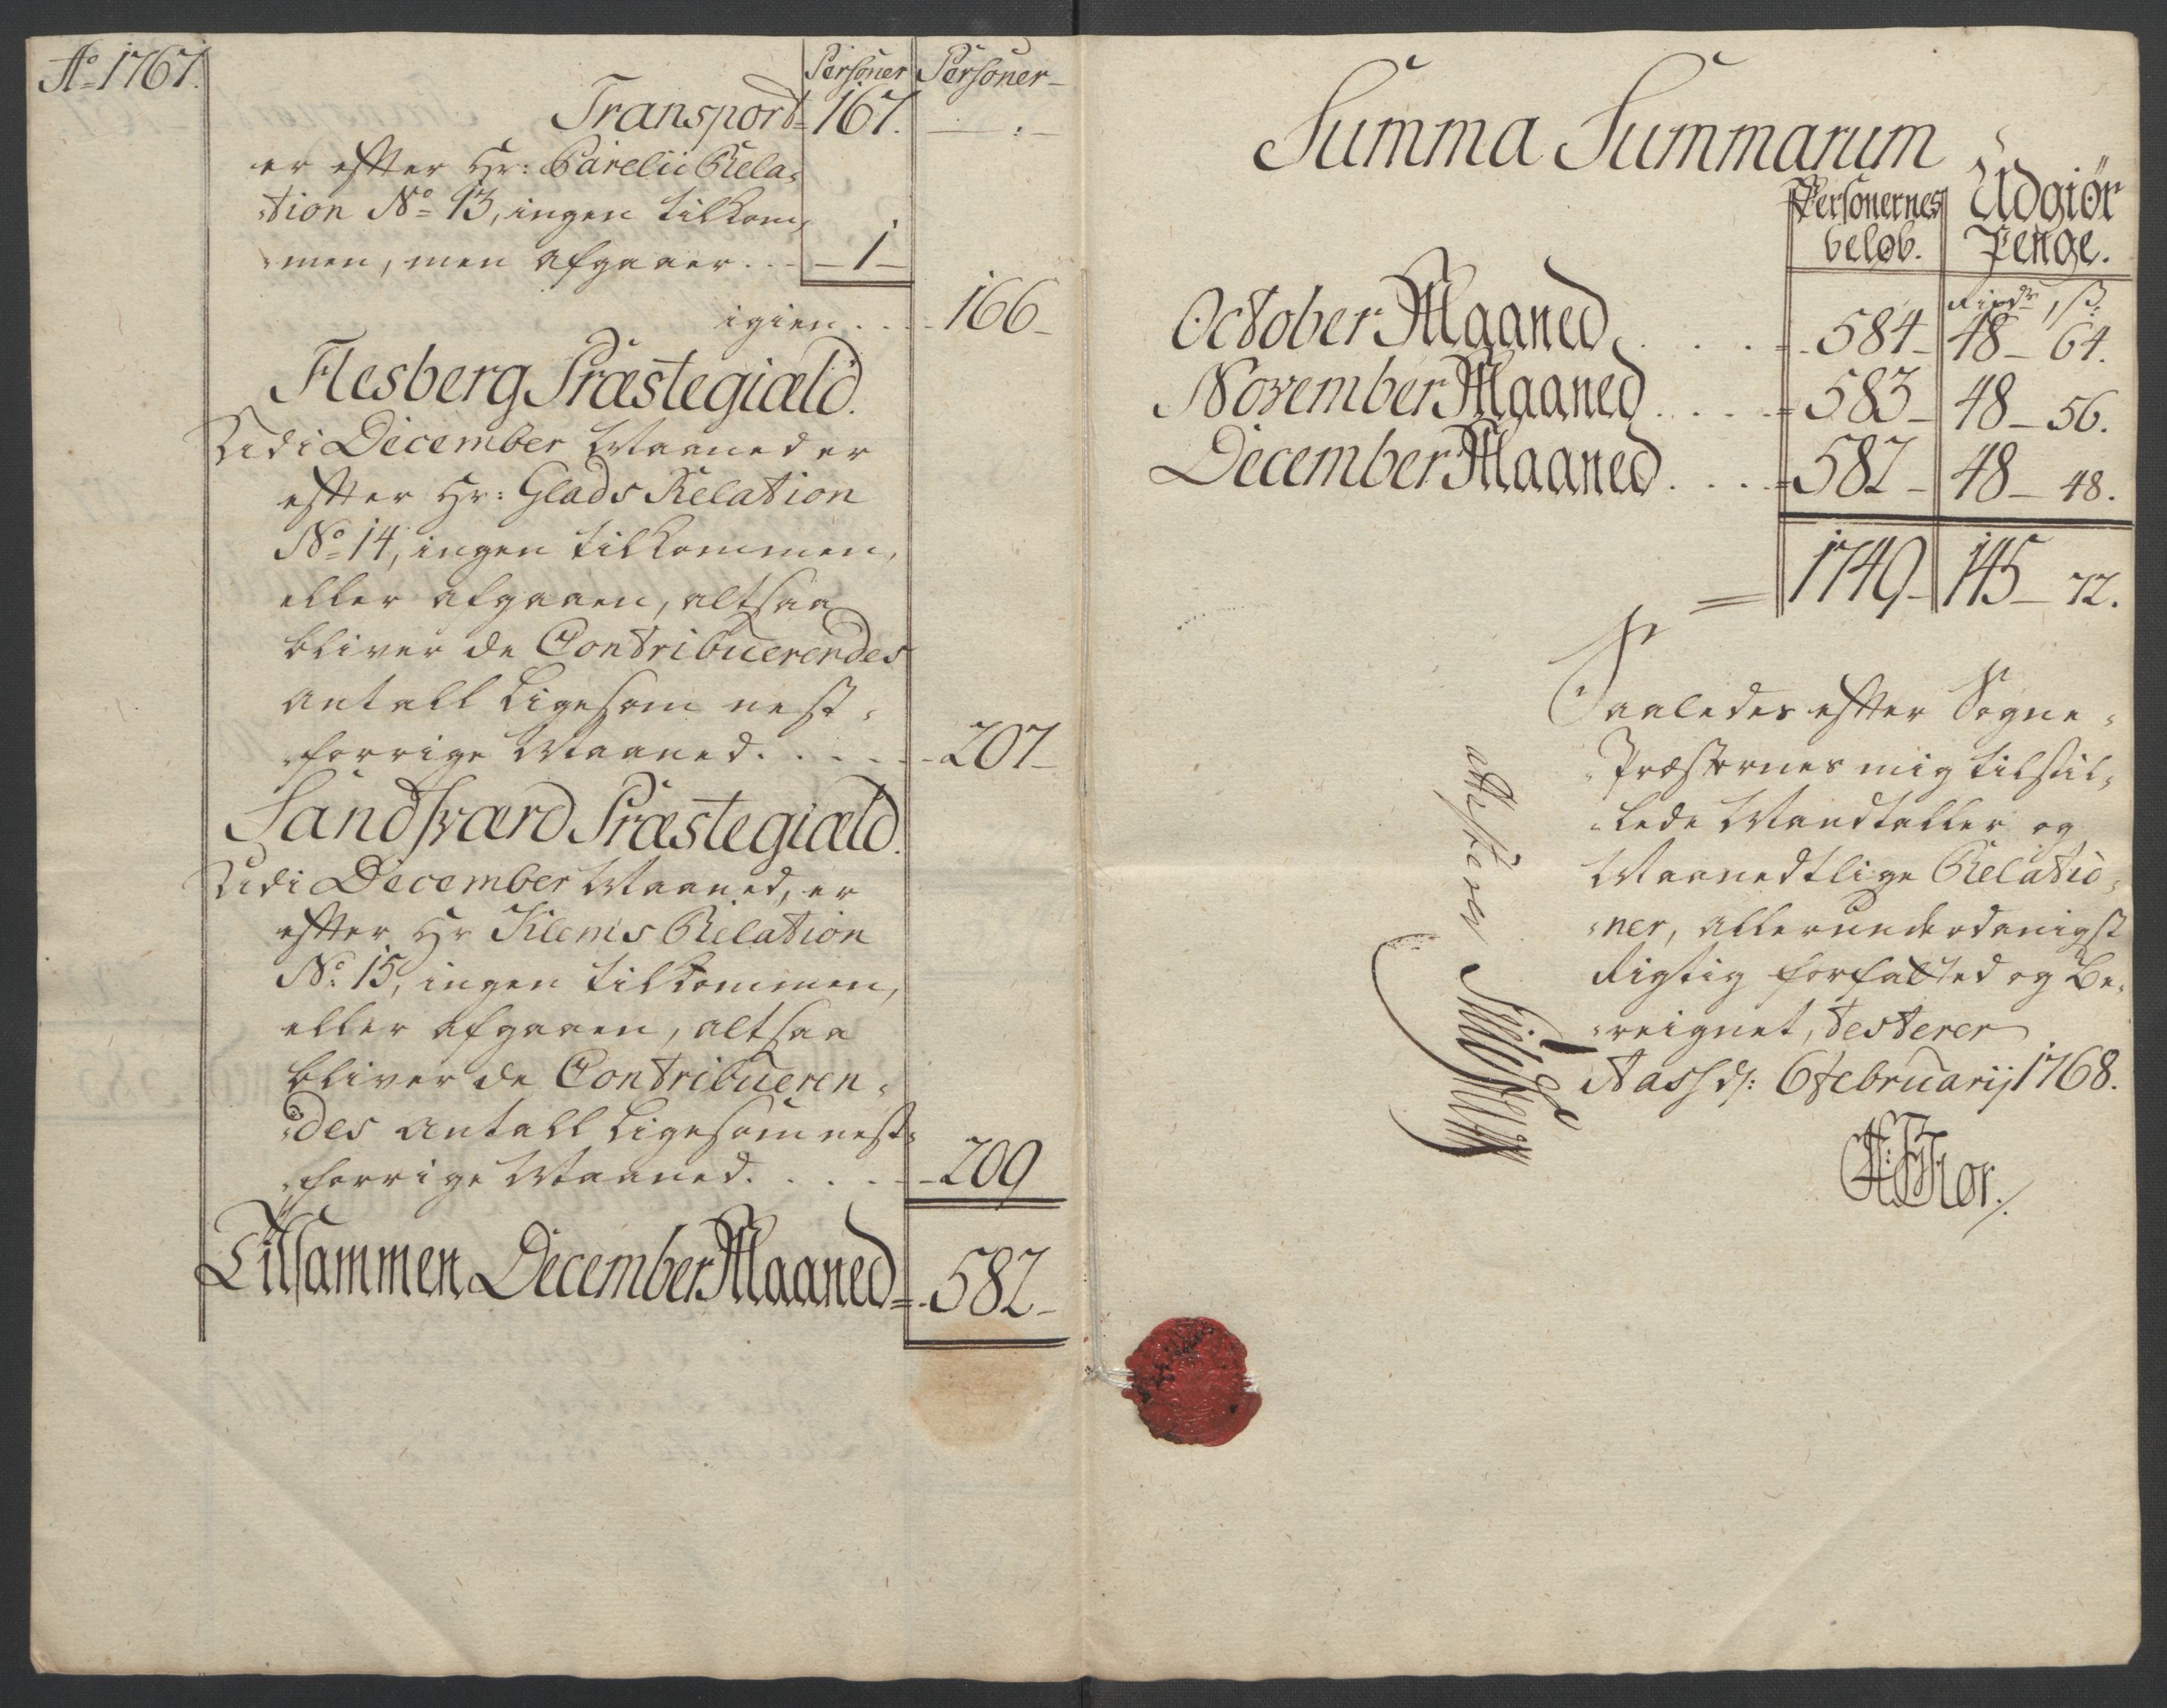 Ao 1767.
Personer Personer
Transport 167.
er efter Hr: Parelii Rela-
-tion No 13, ingen tilkom-
-men, men afgaaer . . . 1
igien . . . 166
Flesberg Præstegiæld.
Udi December Maaned er
efter Hr: Glads Relation
No 14, ingen tilkommen,
eller afgaaen, altsaa
bliver de Contribuerendes
antall ligesom nest-
forrige Maaned. . . . . 207
Sandsværd Præstegiæld.
Udi December Maaned, er
efter Hr Klems Relation
No: 15, ingen tilkommen,
eller afgaaen, altsaa
bliver de Contribueren-
-des antall ligesom nest-
-forrige Maaned. . . . . 209
Tilsammen December Maaned = 582
Summa Summarum
Personernes beløb. Udgiør Penge.
Rixdr ß
October Maaned . . . . 584 48 64.
November Maaned . . . . 583 48 56.
December Maaned . . . . 582 48 48.
= 1749 145 72.
Saaledes efter Sogne-
-Præsternes mig tilstil-
-lede Mandtaller og
Maanedtlige Relatio-
-ner, allerunderdanigst
Rigtig forfatted og be-
-reignet, testerer
Aass d: 6 Februarij 1768.